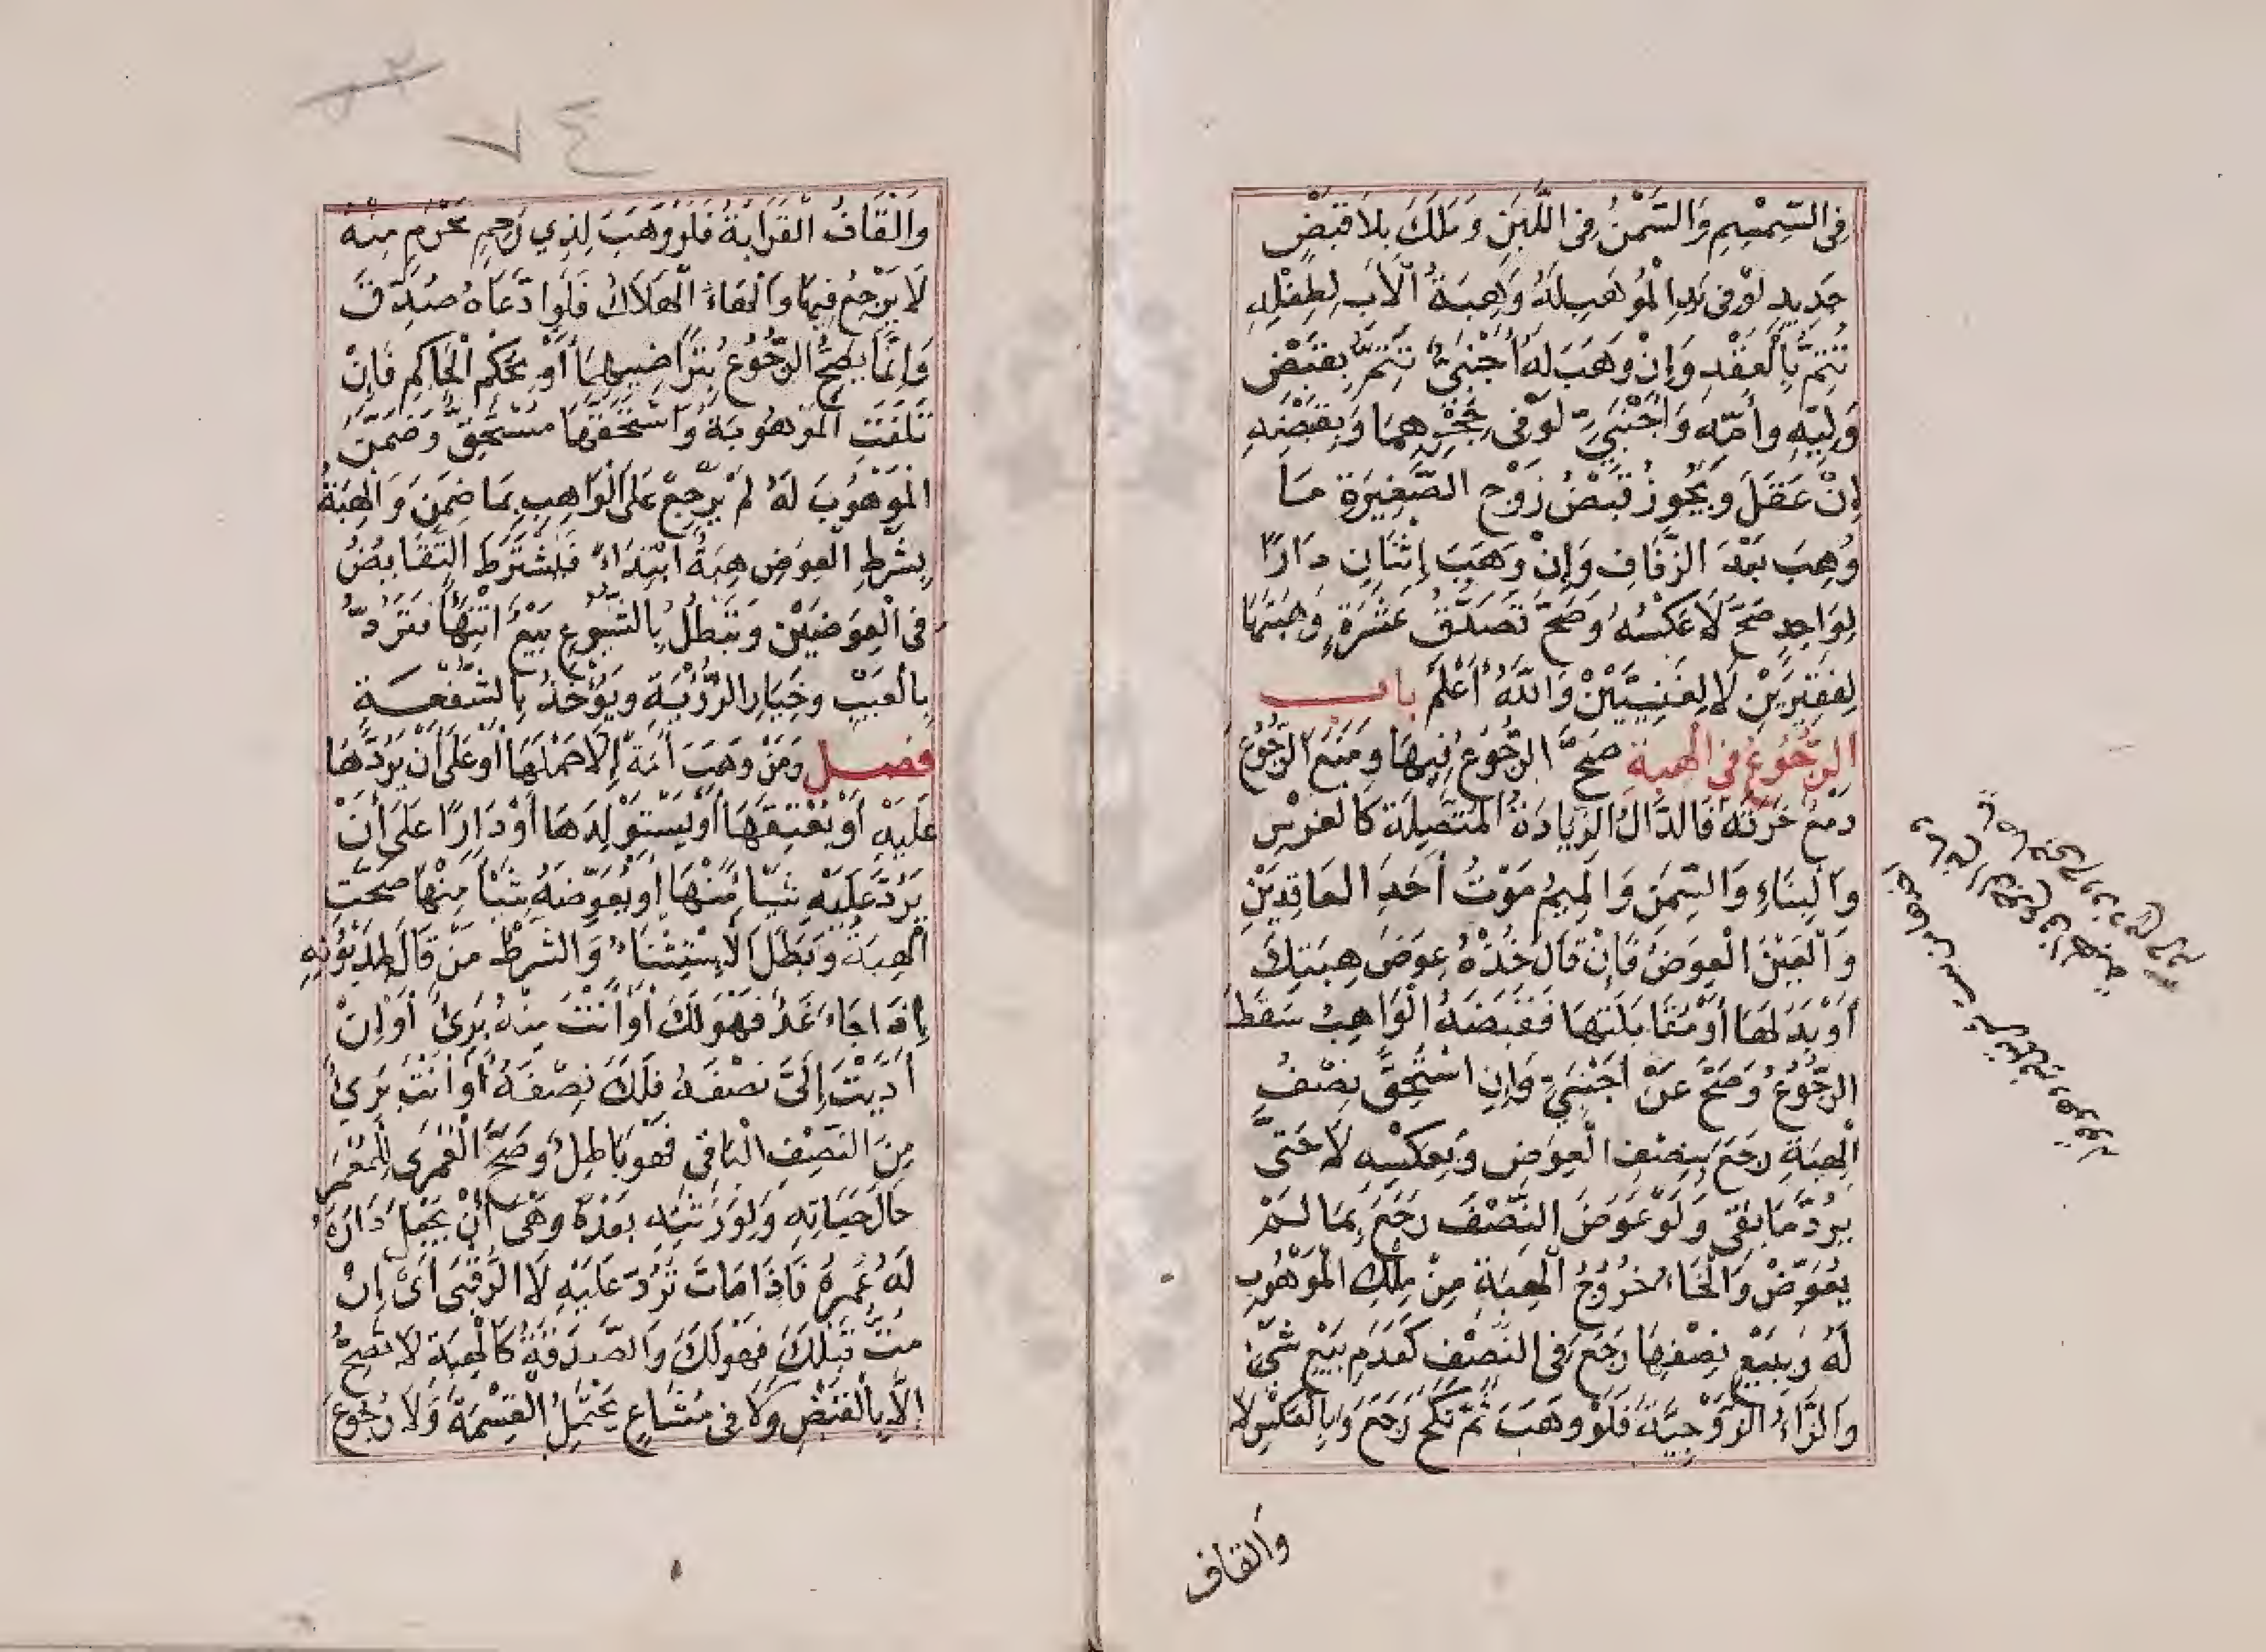 فِى السِّمْسِمِ وَالسَّمْنُ فِى اللَّبَنِ وَمَلَكَ بِلَا قَبْضٍ
جَدِيدٍ لَوْ فِى يَدِ الْمَوُهُبِ لَهُ وَهِبَةُ الْأَبِ لِطِفْلِهِ
تَتِمُّ بِالْعَقْدِ وَإِنْ وَهَبَ لَهُ أَجْنَبِىٌّ تَتِمُّ بِقَبْضِ
وَلِيِّهِ وَأُمِّهِ وَأَجْنَبِيٍّ لَوْ فِى حَجْرِهِمَا وَبِقَبْضِهِ
إِنْ عَقَلَ وَيَجُوزُ قَبْضُ زَوْجِ الصَّغِيرَةِ مَا
وُهِبَ بَعْدَ الزِّفَافِ وَإِنْ وَهَبَ إِثْنَانِ دَارًا
لِوَاحِدٍ صَحَّ لَا عَكْسُهُ وَصَحَّ تَصَدُّقُ عَشَرَةٍ وَهِبَتُهَا
لِفَقِيرَيْنِ لَا لِغَنِيَّيْنِ وَاللهُ أَعْلَمُ باب
الرُّجُوعُ فِى الْهِبَةِ صَحَّ الرُّجُوعُ فِيهَا وَمَنَعَ الرُّجُوعُ
دَمْعُ خَزَقَهُ فَالدَّالُ الزِّيَادَةُ الْمُتَّصِلَةُ كَالْغَرْسِ
وَالْبِنَاءِ وَالسِّمَنِ وَالْمِيمُ مَوْتُ أَحَدِ الْعَاقِدَيْنِ
وَالْعَيْنُ الْعِوَضُ فَإِنْ قَالَ خُذْهُ عِوَضَ هِبَتِكَ
أَوْ بَدَلَهَا أَوْ مُقَابَلَتِهَا فَقَبَضَهُ الْوَاهِبُ سَقَطَ
الرُّجُوعُ وَصَحَّ عَنْ أَجْنَبِيٍّ وَإِنِ اسْتُحِقَّ نِصْفُ
الْهِبَةِ رَجَعَ بِنِصْفِ الْعِوَضِ وَبِعَكْسِهِ لَا حَتَّى
يَرُدَّ مَا بَقِىَ وَلَوْ عَوَضَ النِّصْفَ رَجَعَ بِمَا لَمْ
يُعَوِّضْ وَالْخَاءُ خُرُوجُ الْهِبَةِ مِنْ مِلْكِ الْمَوْهُوبِ
لَهُ وَبِبَيْعِ نِصْفِهَا رَجَعَ فِى النِّصْفِ كَعَدَمِ بَيْعِ شَىْءٍ
وَالزَّاءُ الزَّوْجِيَّةُ فَلَوْ وَهَبَ ثُمَّ نَكَحَ رَجَعَ وَبِالْعَكْسِ لَا
وَالقاف
٧٤
وَالْقَافُ الْقَرَابَةُ فَلَوْ وَهَبَ لِذِي رَحِمٍ مَحْرَمٍ مِنْهُ
لَا يَرْجِعُ فِيهَا وَالْهَاءُ الْهَلَاكُ فَلَوِ ادَّعَاهُ صُدِّقَ
وَإِنَّمَا يَصِحُّ الرُّجُوعُ بِتَرَاضِيهِمَا أَوْ بِحُكْمِ الْحَاكِمِ فَإِنْ
تَلَفَتِ الْمَوْهُوبَةُ وَاسْتَحَقَّهَا مُسْتَحِقٌّ وَضَمَّنَ
الْمَوْهُوبَ لَهُ لَمْ يَرْجِعْ عَلَى الْوَاهِبِ بِمَا ضَمِنَ وَالْهِبَةُ
بِشَرْطِ الْعِوَضِ هِبَةُ ابْتِدَاءً فَيُشْتَرَطُ التَّقَابُضُ
فِى الْعِوَضَيْنِ وَتَبْطُلُ بِالشُّيُوعِ بَيْعٌ انْتِهَاءً فَتُرَدُّ
بِالْعَيْبِ وَخِيَارِ الرُّؤْيَةِ وَيُؤْخَذُ بِالشُّفْعَةِ
فصل وَمَنْ وَهَبَ أَمَةً إِلَّا حَمْلَهَا أَوْ عَلَى أَنْ يَرُدَّهَا
عَلَيْهِ أَوْ يُعْتِقَهَا أَوْ يَسْتَوْلِدَهَا أَوْ دَارًا عَلَى أَنْ
يَرُدَّ عَلَيْهِ شَيْأً مِنْهَا أَوْ يُعَوِّضَهُ شَيْأً مِنْهَا صَحَّتِ
الْهِبَةُ وَبَطَلَ الْاِسْتِثْنَاءُ وَالشَّرْطُ مَنْ قَالَ لِمَدْيُونِهِ
إِذَا جَاءَ غَدٌ فَهْوَ لَكَ أَوْ أَنْتَ مِنْهُ بَرِىءٌ أَوْ إِنْ
أَدَّيْتَ إِلَىَّ نِصْفَهُ فَلَكَ نِصْفُهُ أَوْ أَنْتَ بَرِىءٌ
مِنَ النِّصْفِ الْبَاقِى فَهْوَ بَاطِلٌ وَصَحَّ الْعُمْرَى لِلْمُعْمَرِ
حَالَ حَيَاتِهِ وَلِوَرَثَتِهِ بَعْدَهُ وَهْىَ أَنْ يَجْعَلَ دَارَهُ
لَهُ عُمرَهُ فَإِذَا مَاتَ تُرَدُّ عَلَيْهِ لَا الرُّقْبَى أَىْ إِنْ
مِتُّ قَبْلَكَ فَهْوَ لَكَ وَالصَّدَقَةُ كَالْهِبَةِ لَا تَصِحُّ
إِلَّا بِالْقَبْضِ وَلَا فِى مُشَاعٍ يَحْتَمِلُ الْقِسْمَةَ وَلَا رُجُوعَ